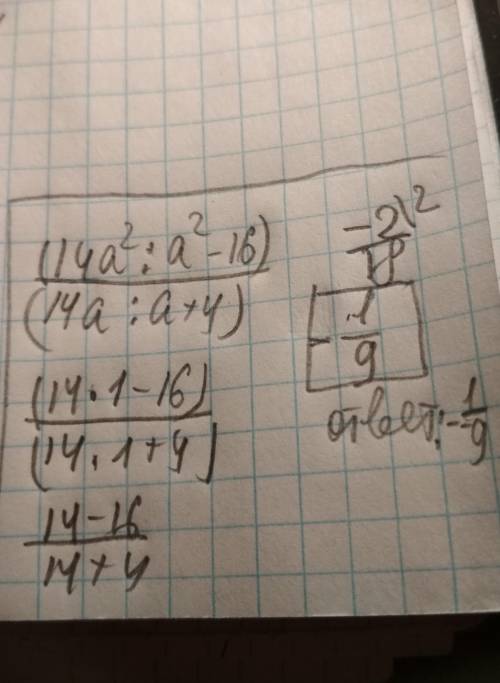 (14a²:a²-16)
(14a:a+4)
(14·1-16)
(14·1+4)
14-16
14+4
-2\²
18
-1
9
ответ:-1
9